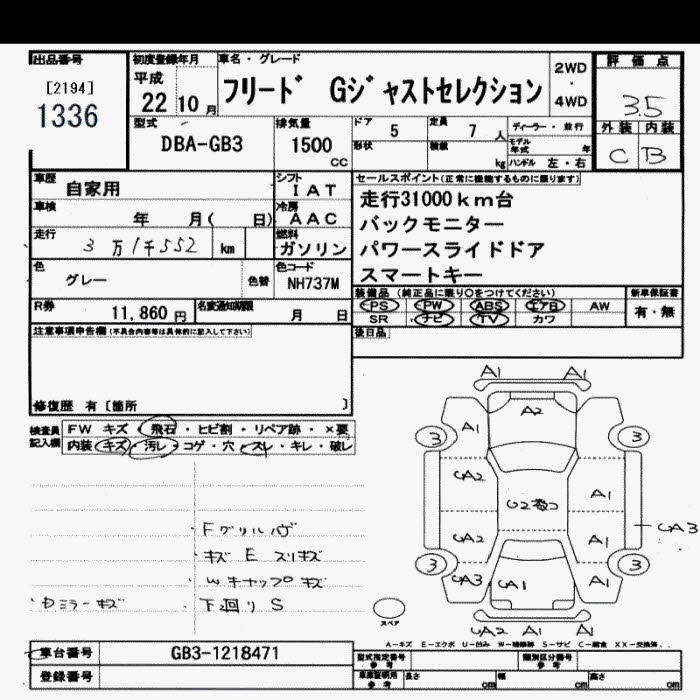 出品番号 初度登録年月 車名・グレード 評価点
[2194] 平成 フリード Gジャストセレクション 2WD
1336 22 10月 4WD 3.5
型式 排気量 ドア 定員 ディーラー・並行 外装 内装
DBA-GB3 1500 CC 5 7人 モデル年式 年 C B
形状 積載 kg ハンドル 左・右
車歴 自家用 シフト IAT セールスポイント(正常に機能するものに限ります)
車検 年 月( 日) 冷房 AAC 走行31000km台
走行 3万1千552 km 燃料 ガソリン バックモニター
パワースライドドア
色 グレー 色替 色コード NH737M スマートキー
R券 11,860円 名変通知期限 月 日 装備品(純正品に限り○をつけてください) 新車保証書
PS PW ABS エアB AW 有・無
SR ナビ TV カワ
注意事項申告欄(不具合内容等は具体的に記入して下さい) 後日品
修復歴 有〔箇所 〕
検査員記入欄 FW キズ・飛石・ヒビ割・リペア跡・×要
内装 キズ・汚レ・コゲ・穴・スレ・キレ・破レ
A1 A1
A2
A1
3 3
A2 A1
A2 A1 A3
3 3
A3 A1 A1
A2 A1 A1
キズ E スリキズ
Wキャップ キズ
ミラーキズ 下廻り S
スペア
A-キズ E-エクボ U-凹み W-補修跡 S-サビ C-腐食 XX-交換済
車台番号 GB3-1218471 型式指定番号 参考 類別区分番号 参考
登録番号 車庫証明用 参考 長さ cm 幅 cm 高さ cm